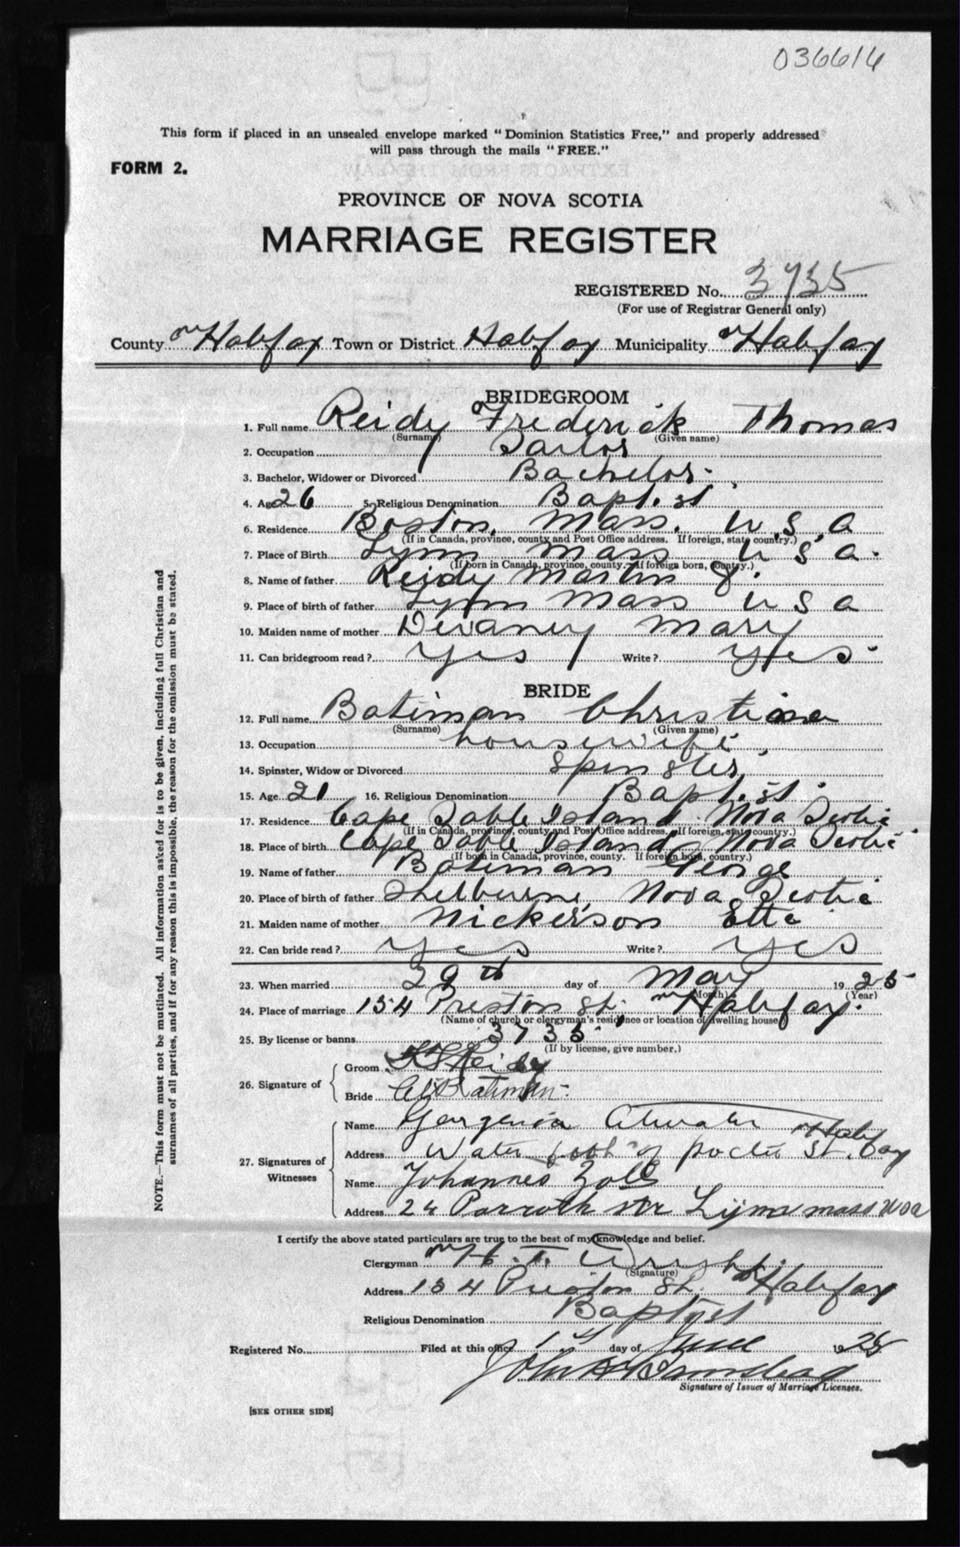 036616
This form if placed in an unsealed envelope marked "Dominion Statistics Free," and properly addressed
will pass through the mails "FREE."
FORM 2.
PROVINCE OF NOVA SCOTIA
MARRIAGE REGISTER
REGISTERED No. 3735
(For use of Registrar General only)
County Halifax Town or District Halifax Municipality Halifax
BRIDEGROOM
1. Full name Reidy Frederick Thomas
(Surname) (Given name)
2. Occupation Sailor
3. Bachelor, Widower or Divorced Bachelor
4. Age 26 5. Religious Denomination Baptist
6. Residence Boston, Mass. U S A
(If in Canada, province, county and Post Office address. If foreign, state country.)
7. Place of Birth Lynn Mass U S A.
(If born in Canada, province, county. If foreign born, country.)
8. Name of father Reidy Martin J.
9. Place of birth of father Lynn Mass U S A
10. Maiden name of mother Devaney Mary
11. Can bridegroom read? Yes Write? Yes
BRIDE
12. Full name Bateman Christine
(Surname) (Given name)
13. Occupation housewife
14. Spinster, Widow or Divorced Spinster
15. Age 21 16. Religious Denomination Baptist
17. Residence Cape Sable Island Nova Scotia
(If in Canada, province, county and Post Office address. If foreign, state country.)
18. Place of birth Cape Sable Island Nova Scotia
(If born in Canada, province, county. If foreign born, country.)
19. Name of father Bateman George
20. Place of birth of father Shelburne, Nova Scotia
21. Maiden name of mother Nickerson Etta
22. Can bride read? Yes Write? Yes
23. When married 29th day of May 1925
(Month) (Year)
24. Place of marriage 154 Preston St., Halifax.
(Name of church or clergyman's residence or location of dwelling house)
25. By license or banns 3735
(If by license, give number.)
26. Signature of Groom Reidy
Bride Bateman
27. Signatures of Witnesses Name Georgenia Atwater
Address Water St. Halifax
Name Johannes
Address 24 Lynn mass USA
I certify the above stated particulars are true to the best of my knowledge and belief.
Clergyman
(Signature)
Address 154 Preston St. Halifax
Religious Denomination Baptist
Registered No. Filed at this office 1st day of June 1925
John
Signature of Issuer of Marriage Licenses.
[SEE OTHER SIDE]
NOTE.—This form must not be mutilated. All information asked for is to be given, including full Christian and
surnames of all parties, and if for any reason this is impossible, the reason for the omission must be stated.